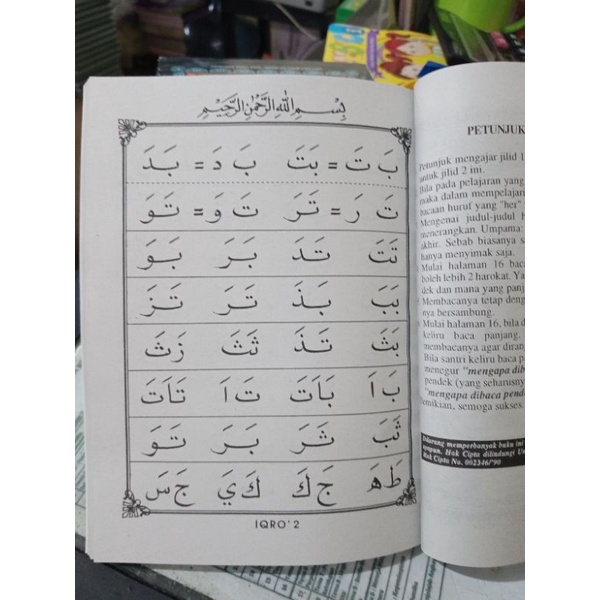 بِسْمِ اللهِ الرَّحْمٰنِ الرَّحِيْمِ
بَ تَ = بَتَ بَ دَ = بَدَ
تَ رَ = تَرَ تَ وَ = تَوَ
تَتَ تَدَ بَرَ بَوَ
بَبَ بَذَ تَرَ تَزَ
بَثَ تَذَ ثَثَ زَثَ
بَ اَ بَاَتَ تَ اَ تَاَتَ
ثَبَ ثَرَ بَرَ تَوَ
طَ هَ جَ كَ كَ يَ جَ سَ
IQRO' 2
PETUNJUK
Petunjuk mengajar jilid 1
untuk jilid 2 ini.
Bila pada pelajaran yang
maka dalam mempelajar
bacaan huruf yang "her"
Mengenai judul-judul
menerangkan. Umpama:
akhir. Sebab biasanya sa
hanya menyimak saja.
Mulai halaman 16 baca
boleh lebih 2 harokat. Ya
dek dan mana yang panj
Membacanya tetap deng
nya bersambung.
Mulai halaman 16, bila d
keliru baca panjang.
membacanya agar diran
Bila santri keliru baca p
menegur "mengapa diba
pendek (yang seharusny
"mengapa dibaca pende
Demikian, semoga sukses.
Dilarang memperbanyak buku ini
apapun. Hak Cipta dilindungi Un
Hak Cipta No. 002346/'90